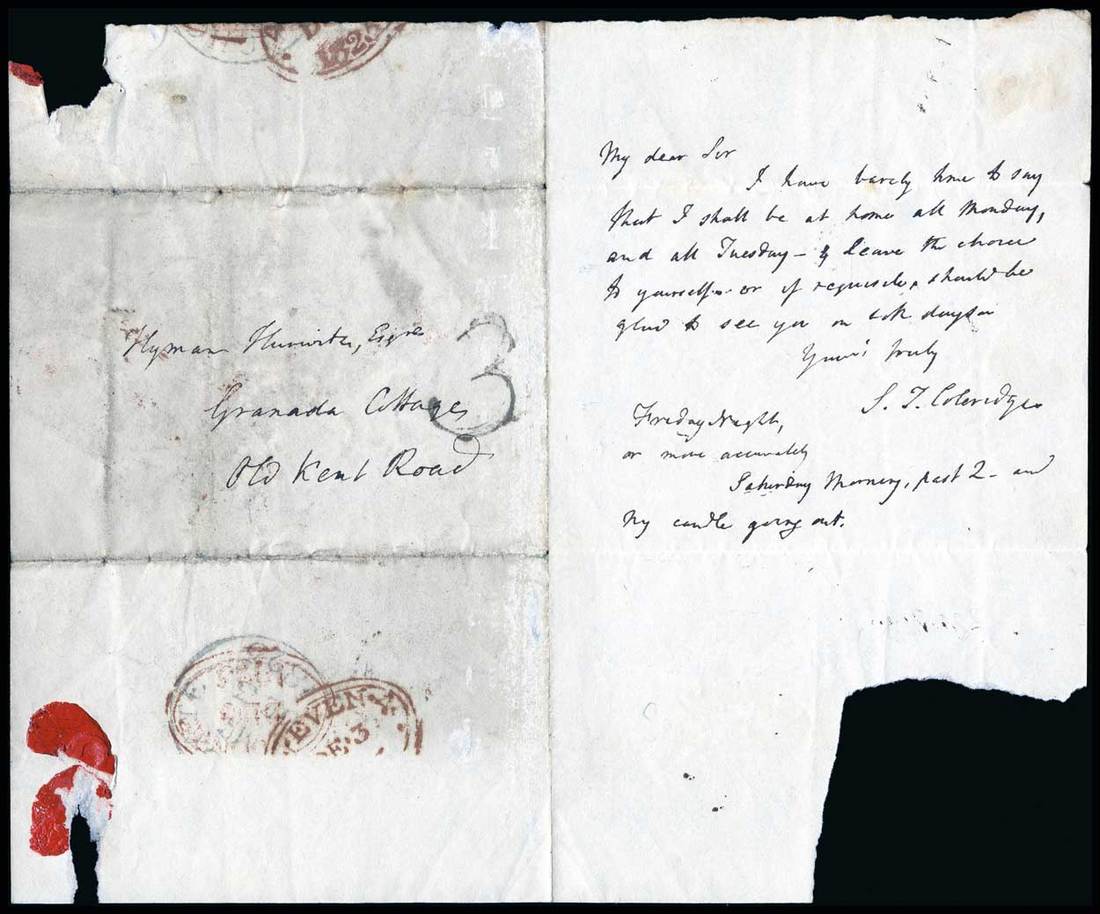 Hyman Hurwitz, Esqre
Granada Cottages
Old Kent Road
3
EVEN
DE. 3
My dear Sir
I have barely time to say
that I shall be at home all Monday,
and all Tuesday — & leave the choice
to yourself — or if requisite, should be
glad to see you on both days.
Your's truly
S. T. Coleridge
Friday Night,
or more accurately
Saturday Morning, past 2 — and
my candle going out.